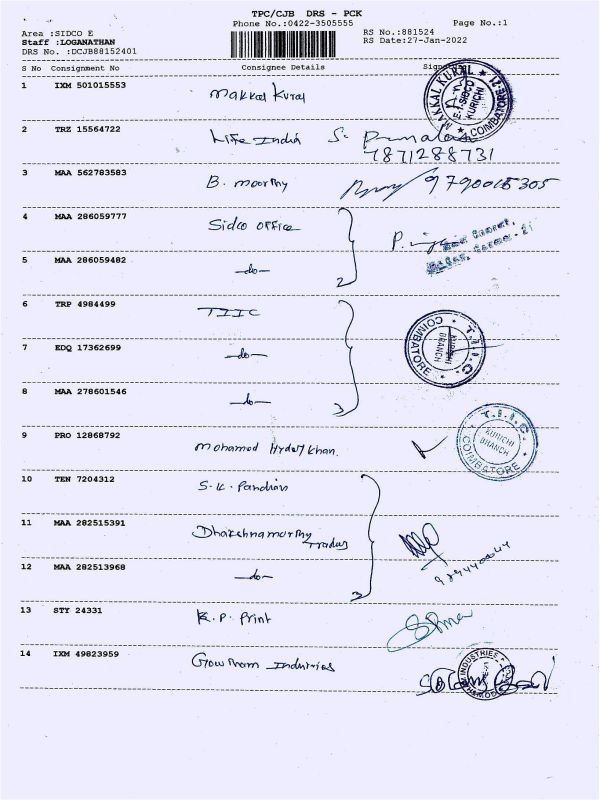 TPC/CJB DRS - PCK
Phone No.:0422-3505555 Page No.:1
Area :SIDCO E RS No.:881524
Staff :LOGANATHAN RS Date:27-Jan-2022
DRS No. :DCJB88152401
S No Consignment No Consignee Details
1 IXM 501015553 Makkal Kural
MAKKAL KURAL COIMBATORE-21
SIDCO
KURICHI
2 TRZ 15564722 Life India S.
7871288731
3 MAA 562783583 B. Moorthy
4 MAA 286059777 Sidco office P.
5 MAA 286059482 -do- 2
6 TRP 4984499 TIIC
T.I.I.C. COIMBATORE
KURICHI
BRANCH
7 EDQ 17362699 -do-
8 MAA 278601546 -do- 3
9 PRO 12868792 Mohamed Hyder Khan.
T.I.I.C. COIMBATORE
KURICHI
BRANCH
10 TEN 7204312 S.K. Pandian
11 MAA 282515391 Dharshnamurthy
Trades
12 MAA 282513968 -do- 3
13 STY 24331 K.P. Print
14 IXM 49823959 Gowtham Industries
INDUSTRIES